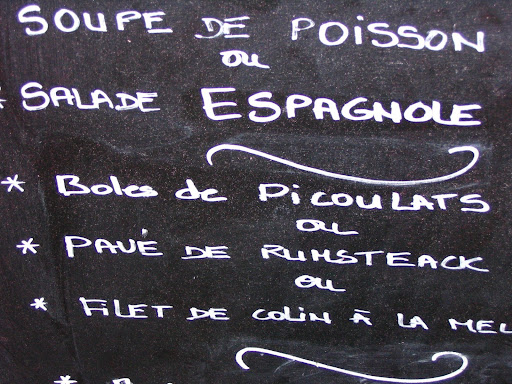 SOUPE DE POISSON
ou
* SALADE ESPAGNOLE
* Boles de PICOULATS
ou
* PAVÉ DE RUMSTEACK
ou
* FILET DE COLIN À LA MEL
*